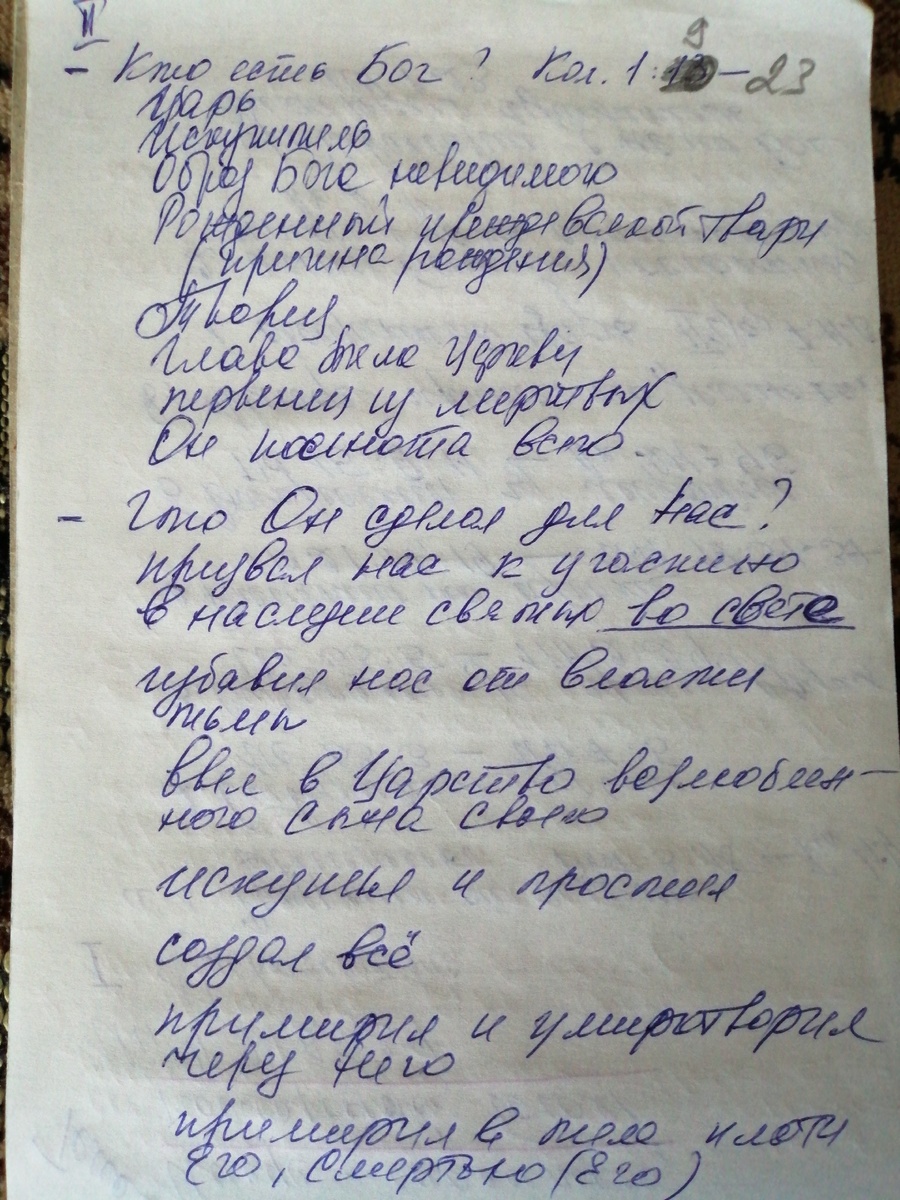 II
- Кто есть Бог? Кол. 1:9-23
Царь
Искупитель
Образ Бога невидимого
Рожденный прежде всякой твари
(причина рождения)
Творец
Глава тела Церкви
первенец из мертвых
Он полнота всего
- Что Он сделал для нас?
призвал нас к участию
в наследии святых во свете
избавил нас от власти
тьмы
ввел в Царство возлюблен-
ного сына своего
искупил и простил
создал всё
примирил и умиротворил
через Него
примирил в теле плоти
Его, смертью (Его)